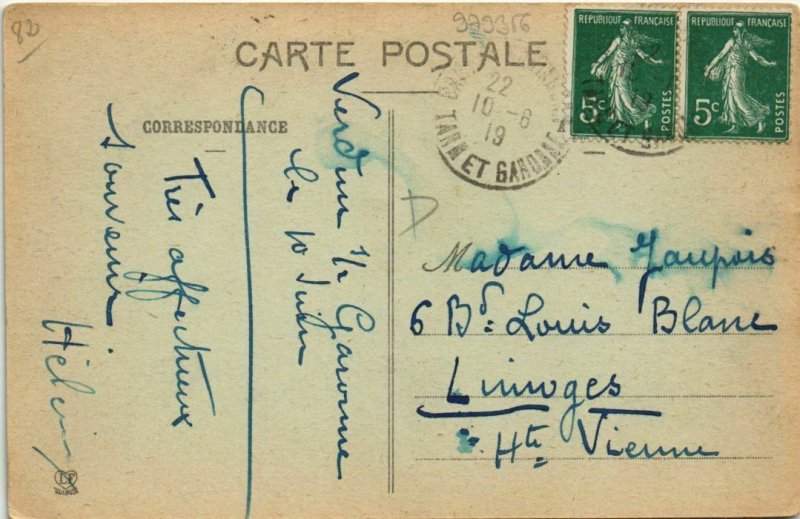 82
979356
CARTE POSTALE
CORRESPONDANCE
RÉPUBLIQUE FRANÇAISE
5c
POSTES
RÉPUBLIQUE FRANÇAISE
5c
POSTES
22
10-6
19
TARN ET GARONNE
Verdun s/ Garonne
le 10 Juin
Très affectueux
souvenir
Madame
6 Bd: Louis Blanc
Limoges
Hte Vienne